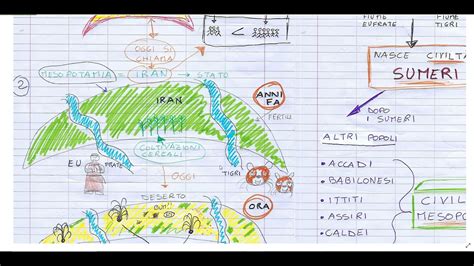 OGGI SI
CHIAMA
MESOPOTAMIA = IRAN → STATO
2
IRAN
ANNI
FA
COLTIVAZIONI
CEREALI
EU FRATE
OGGI
TIGRI
DESERTO
ORA
FIUME
EUFRATE
FIUME
TIGRI
NASCE CIVILT
SUMERI
DOPO
I SUMERI
ALTRI POPOLI
• ACCADI
• BABILONESI
• ITTITI
• ASSIRI
• CALDEI
CIVIL
MESOPO